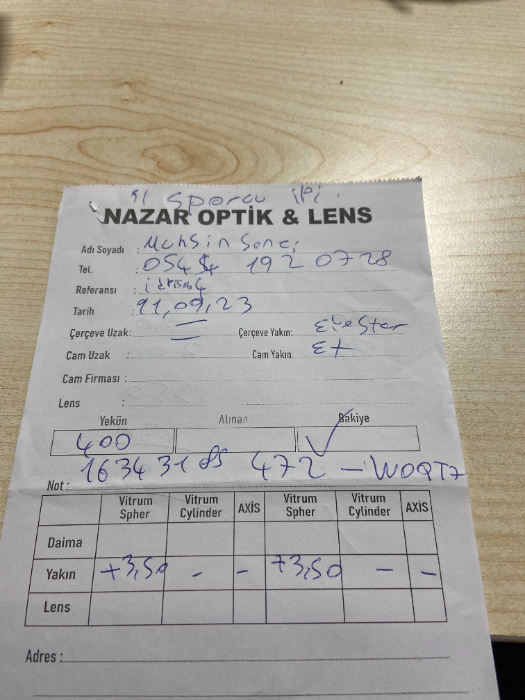 Sporcu ipi
NAZAR OPTİK & LENS
Adı Soyadı : Muhsin
Tel. : 054 1920728
Referansı :
Tarihi : 11,09,23
Çerçeve Uzak: Çerçeve Yakın:
Cam Uzak : Cam Yakın:
Cam Firması :
Lens :
Yekün Alınan Bakiye
400 ✓
163431 472 - WOQT7
Not :
Vitrum Spher Vitrum Cylinder AXİS Vitrum Spher Vitrum Cylinder AXİS
Daima
Yakın +3,50 - - +3,50 - -
Lens
Adres :